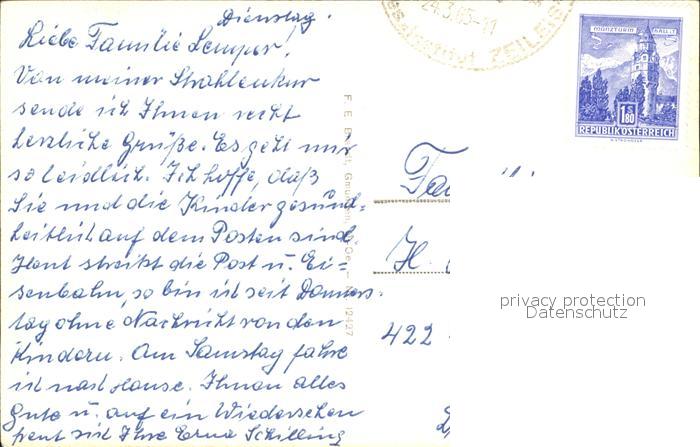 Dienstag.
Liebe Familie Semper!
Von meiner Strahlenkur
sende ich Ihnen recht
herzliche Grüße. Es geht mir
so leidlich. Ich hoffe, daß
Sie und die Kinder gesund-
heitlich auf dem Posten sind.
Heut streikt die Post u. Ei-
senbahn, so bin ich seit Donners-
tag ohne Nachricht von den
Kindern. Am Samstag fahre
ich nach Hause. Ihnen alles
Gute u. auf ein Wiedersehen
freut sich Ihre Erna Schilling
24.3.65-11
ZEILEIS
MÜNZTURM HALL I. T.
S 1.80
REPUBLIK ÖSTERREICH
12427
Fa
H
422
privacy protection
Datenschutz